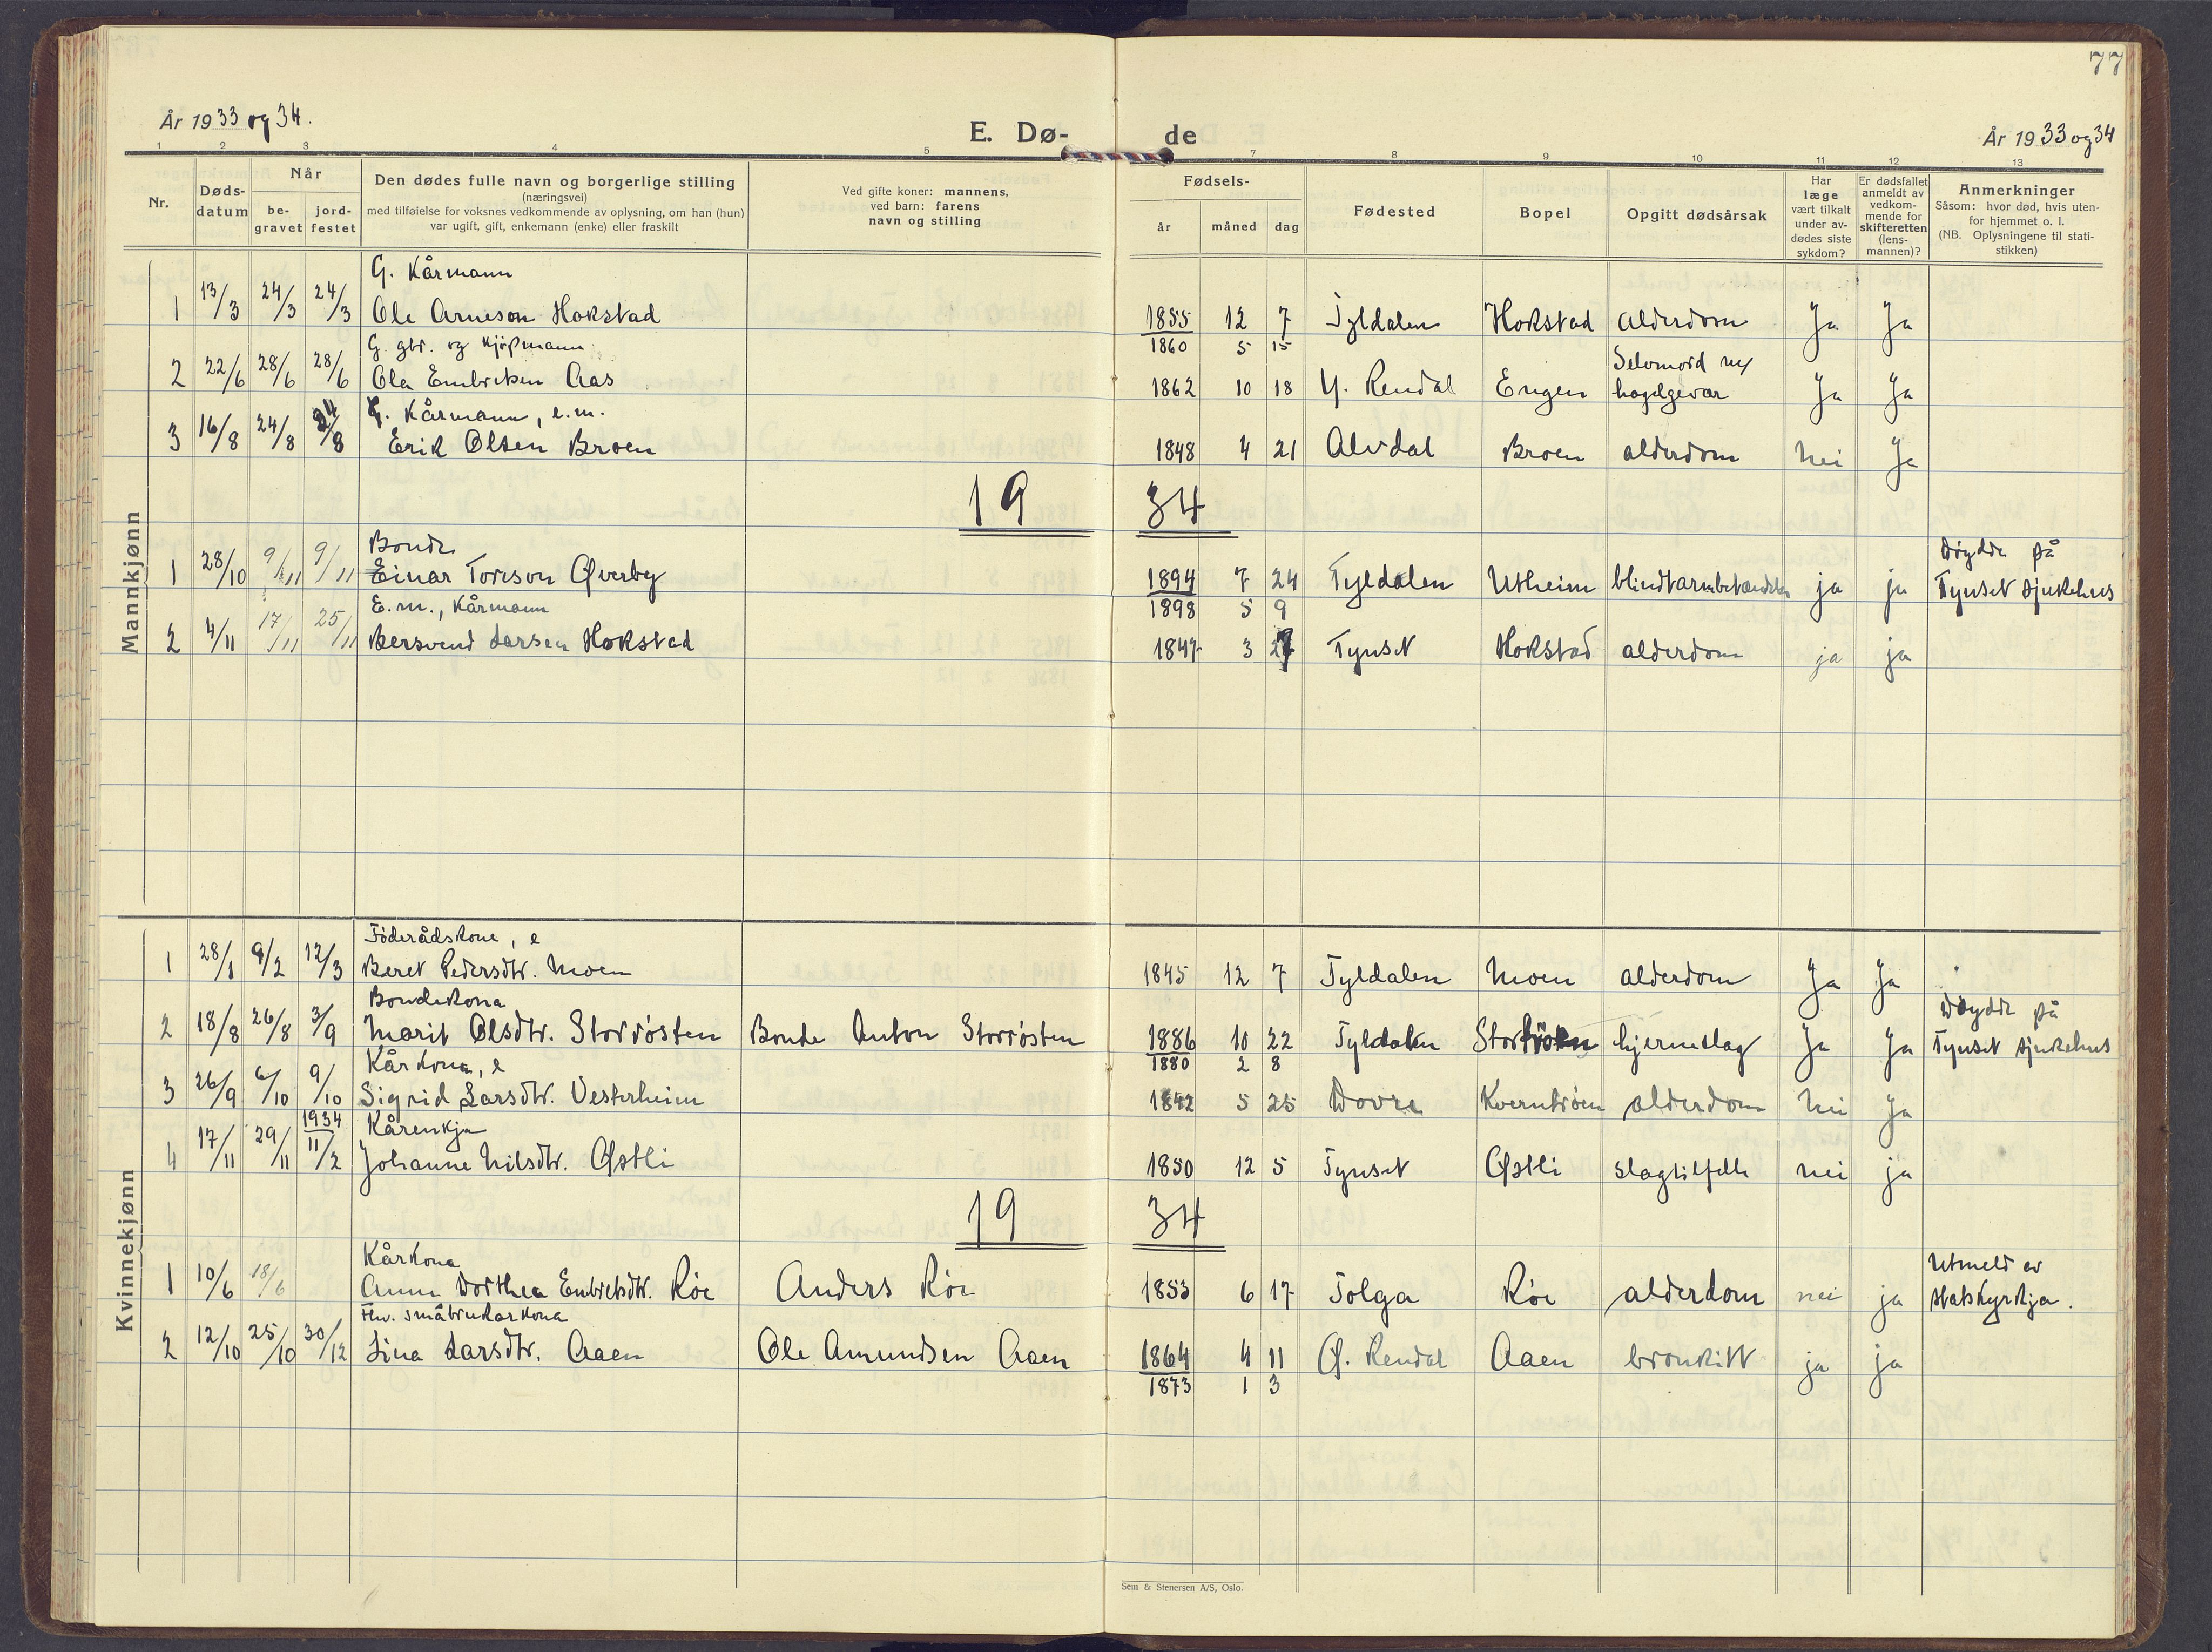 77
År 1933 og 34.
E. Dø-
de
År 1933 og 34
1 2 3 4 5 7 8 9 10 11 12 13
Nr.
Døds-
datum
Når
be-
gravet
jord-
festet
Den dødes fulle navn og borgerlige stilling
(næringsvei)
med tilføielse for voksnes vedkommende av oplysning, om han (hun)
var ugift, gift, enkemann (enke) eller fraskilt
Ved gifte koner: mannens,
ved barn: farens
navn og stilling
Fødsels-
år måned dag
Fødested
Bopel
Opgitt dødsårsak
Har
læge
vært tilkalt
under av-
dødes siste
sykdom?
Er dødsfallet
anmeldt av
vedkom-
mende for
skifteretten
(lens-
mannen)?
Anmerkninger
Såsom: hvor død, hvis uten-
for hjemmet o. l.
(NB. Oplysningene til stati-
stikken)
Mannkjønn
G. Kårmann
1 13/3 24/3 24/3 Ole Arneson Hokstad 1855 12 7 Tyldalen Hokstad alderdom Ja Ja
1860 5 15
G. gbr. og kjøpmann
2 22/6 28/6 28/6 Ola Embretsen Aas 1862 10 18 Y. Rendal Engen Selvmord m/
haglgevær Ja Ja
G. Kårmann, e.m.
3 16/8 24/8 24/8 Erik Olsen Broen 1848 4 21 Alvdal Broen alderdom nei Ja
19 34
Bonde
1 28/10 9/11 9/11 Einar Toreson Øverby 1894 7 24 Tyldalen Utheim blindtarmbetændelse ja ja Døydde på
Tynset sjukehus
1898 5 9
E.m., Kårmann
2 4/11 17/11 25/11 Bersvend Larsen Hokstad 1847 3 27 Tynset Hokstad alderdom ja ja
Kvinnekjønn
Føderådskone, e
1 28/1 9/2 12/3 Beret Pedersdtr. Moen 1845 12 7 Tyldalen Moen alderdom Ja Ja
Bondekona
2 18/8 26/8 3/9 Marit Olsdtr. Storrøsten Bonde Anton Storrøsten 1886 10 22 Tyldalen hjerneslag Ja Ja Døydde på
Tynset sjukehus
1880 2 8
Kårkona, e
3 26/9 6/10 9/10 Sigrid Larsdtr. Vesterheim 1842 5 25 Dovre Kverntrøen alderdom nei Ja
1934
Kårenkja
4 17/11 29/11 11/2 Johanne Nilsdtr. Østli 1850 12 5 Tynset Østli slagtilfelle nei ja
19 34
Kårkona
1 10/6 18/6 Anne Dorthea Embretsdtr. Røe Anders Røe 1853 6 17 Tolga Røe alderdom nei ja Utmeld av
statskyrkja.
Fhv. småbrukarkona
2 12/10 25/10 30/12 Lina Larsdtr. Aaen Ole Amundsen Aaen 1864 4 11 Ø. Rendal Aaen bronkitt ja ja
1873 1 3
Sem & Stenersen A/S, Oslo.